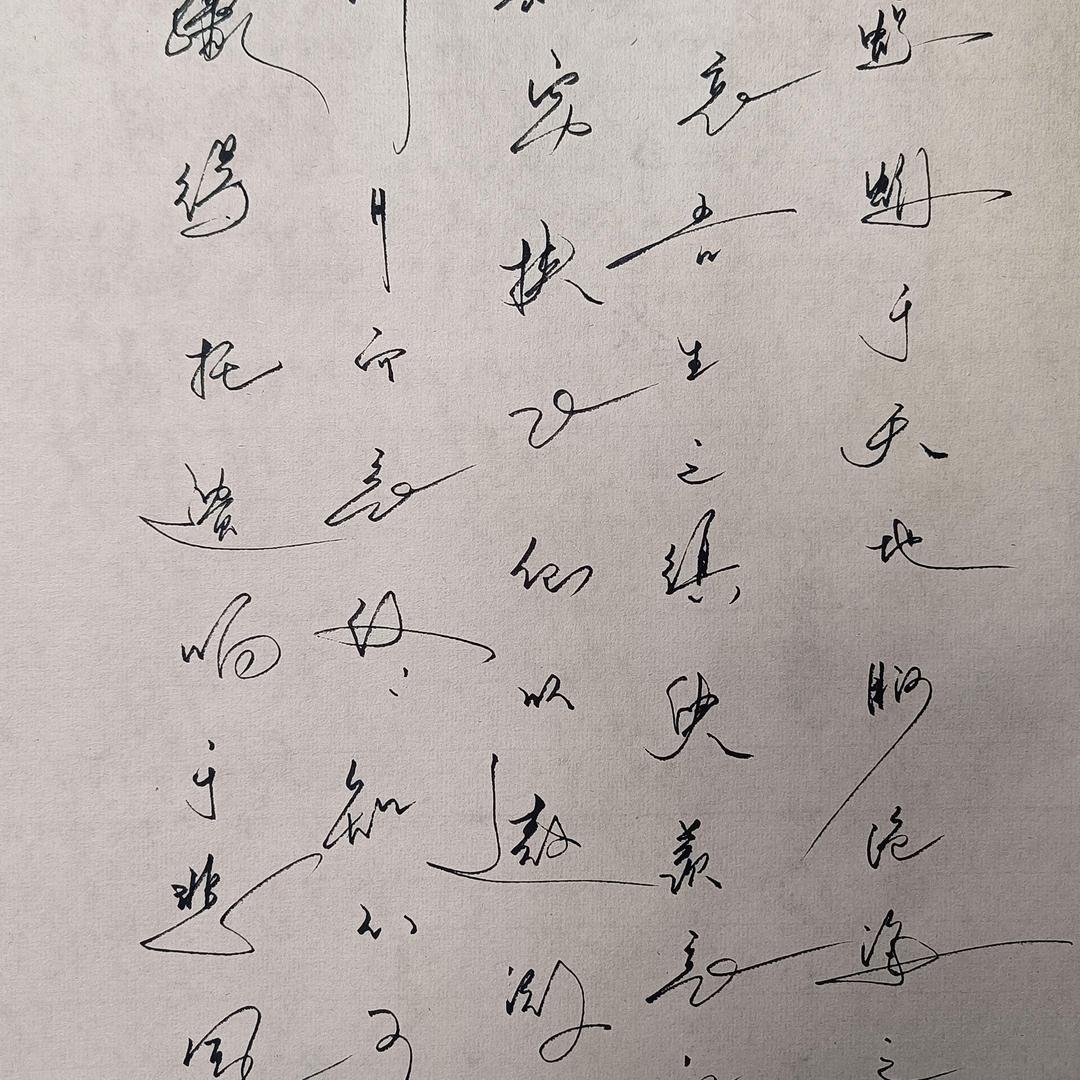 蜉蝣于天地眇沧海之
哀吾生之须臾羡长
穷挟飞仙以遨游
月而长终知不可
骤得托遗响于悲风